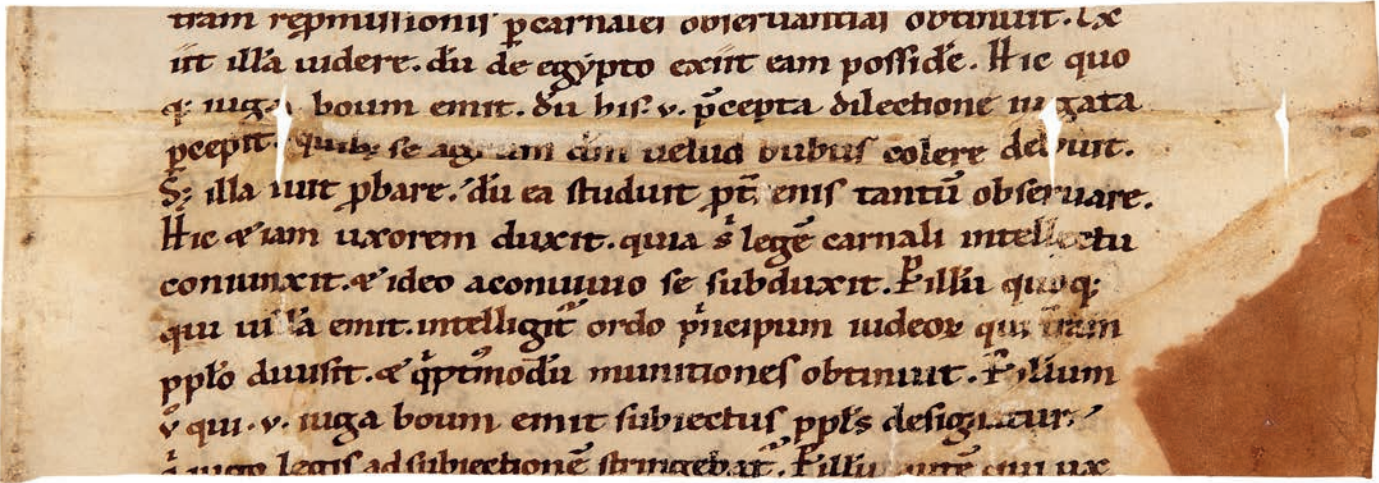 tram rep̱missionis ꝑ carnales obseruantias obtinuit. Ex
iit illā uidere. dū de egypto exiit eam possidē. Hic quo
q; iuga boum emit. dū his .v. p̄cepta dilectione iugata
ꝑcepit. quib; se agrum cū uelud bubus colere debuit.
S; illa iuit ꝓbare. dū ea studuit ꝓt̄ eniſ tantū obseruare.
Hic & iam uxorem duxit. quia s̓ legē carnali intellectu
coniunxit. & ideo aconuiuio se subduxit. P̱ illū quoq;
qui uillā emit. intelligit᷑ ordo pͥncipum iudeoꝝ qui t̄ram
pplo diuisit. & q̓ptͦmodū munitiones obtinuit. P̱ illum
v̊ qui .v. iuga boum emit subiectus ppl̄s designatur.
q̓ iugo legis ad subiectionē stringebat᷑. P̱ illū autē qui ux